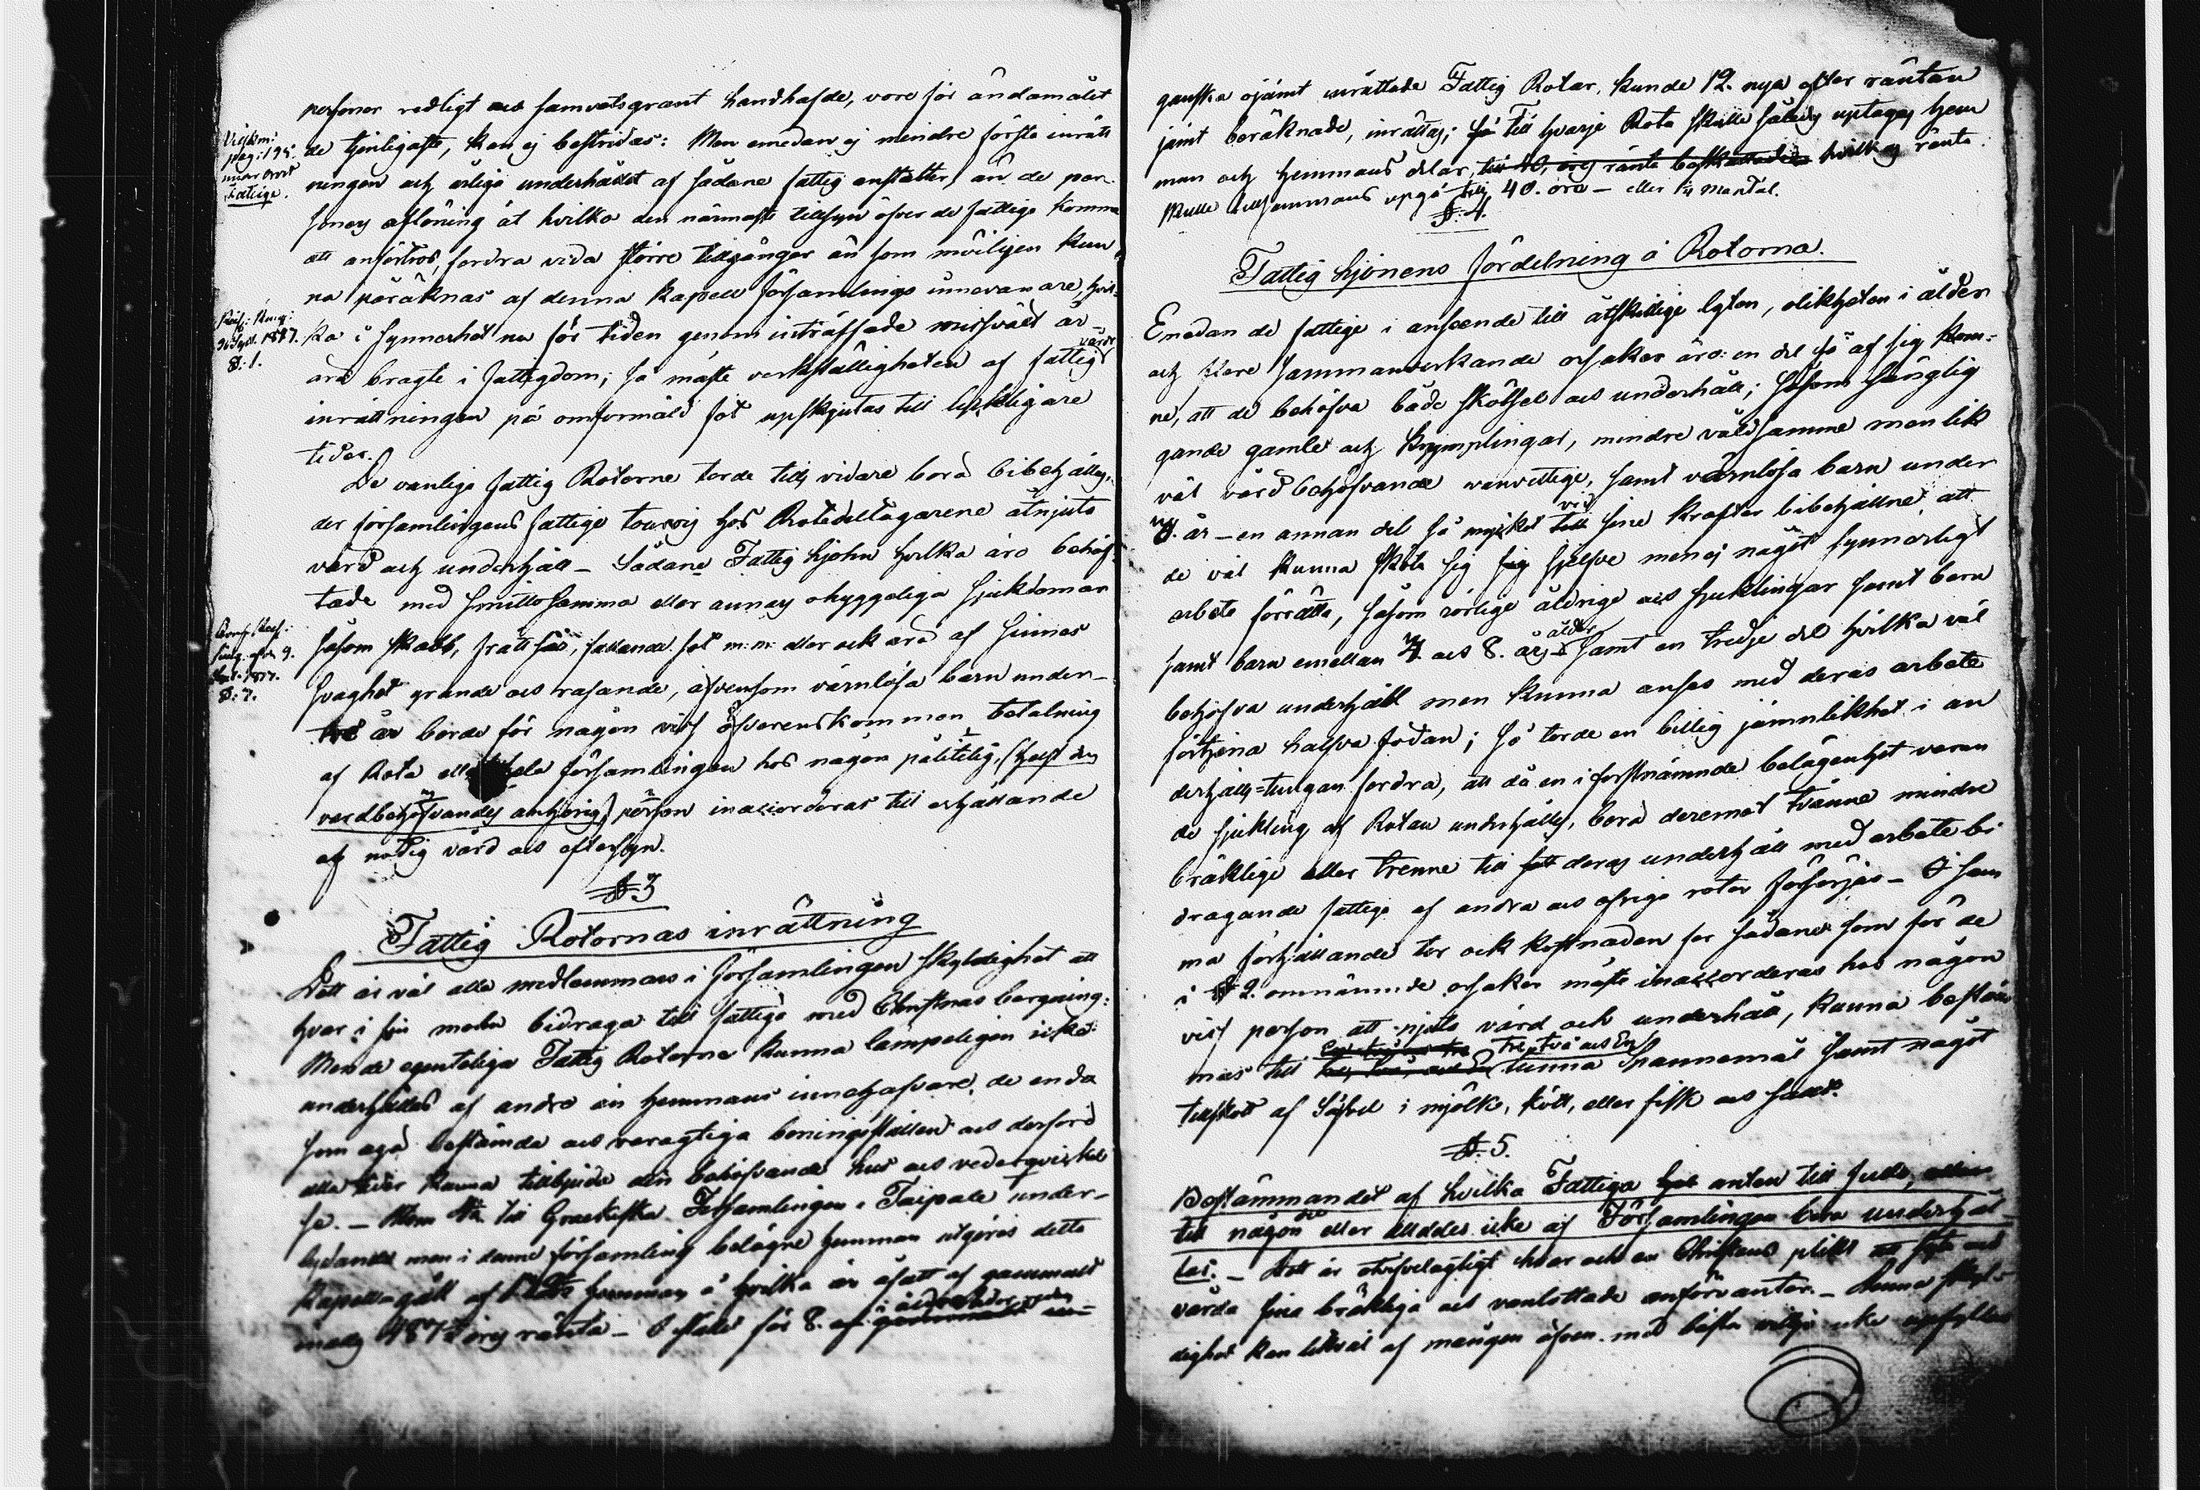 personer redligt och samvetsgrant handhafde, vore för ändamålet
de tjenligaste, kan ej bestridas: Men emedan ej mindre första inrätt
ningen och årliga underhållet af sådane fattig anstalter, än de per
soners aflöning åt hvilka den närmaste tillsyn öfver de fattige komme
att anförtros, fordra vida större tillgångar än som möiligen kun
na påräknas af denna kapell församlings innevånare, hvil-
ka i synnerhet nu för tiden genom inträffade missväxt är-
ard bragte i fattigdom; så måste verkställigheten af fattig vårds
inrättningen på omförmäld sät upskjutas till lyckligare
tider.
De vanlige fattig Rotorne torde till vidare böra bibehållas,
der församlingens fattige tourvis hos Rotedeltagarene åtnjuta
vård och underhåll – Sådane Fattig hjohn hvilka äro behäf-
tade med smittosamma eller annars ohyggeliga sjukdomar
såsom skabb, frätt sår, fallande sot m: m: eller ock äro af sinnes
svaghet grande och rasande, äfvensom värnlösa barn under
år borde för någon viss öfverenskommen betalning
af Rota eller hela församlingen hos någon pålitelig, (helst den
vårdbehöfvandes anhörig) person inaccorderas till erhållande
af nödig vård och eftersyn.
§ 3
Fattig Rotornas inrättning
Dett är väl alla medlemmars i församlingen skyldighet att
hvar i sin mohn bidraga till fattige med Christnas bergning:
Men de egenteliga Fattig Rotorna kunna lämpeligen icke
underhålles af andra än hemmans innehafvare, de enda
som äga bestämda och varagtiga boningsställen och derföre
alla tider kunna tillbjuda den behöfvande hus och vederqvickel
se. – till Grekiska Församlingen i Taipale under-
lydande men i denne församling belägne hemman utgöres detta
kapell-gäll af hemman å hvilka är åsatt af gammalt
örs ränta – I stället för 8.
Vilskm:
pag: 195.
Fattige.
30 Sept. 1817.
§. 1.
§. 7.
ganska ojämt inrättade Fattig Rotar, kunde 12. nya efter räntan
jämt beräknade, inrättas; så Till hvarje Rota skulle således uptagas hem
man och hemmans delar, hvilkas ränta
skulle tillsammans upgå till 40. öre – eller 1/4 mantal.
§. 4.
Fattig hjonens fördelning å Rotorna.
Emedan de fattige i anseende till åtskillige lyten, olikheten i ålder
och flere sammanverkande orsaker äro: en del så af sig kom-
ne, att de behöfva både skötsel och underhåll; såsom sänglig
gande gamle och krymplingar, mindre våldsamme men lik
väl vård behöfvande vanvettige, samt värnlösa barn under
år – en annan del så mycket vid sine krafter bibehållne, att
de väl kunna sköta sig sjelfve men ej något synnerligt
arbete förrätta, såsom rörlige åldrige och sjuklingar samt barn
samt barn emellan och 8. års ålder samt en tredje del hvilka väl
behöfva underhåll men kunna anses med deras arbete
förtjena halfva födan; så torde en billig jämnlikhet i un
derhålls-tungan fordra, att då en i förstnämnde belägenhet varan
de sjukling af Rotan underhålles, böra deremot tvänne mindre
bräklige eller trenne till deras underhåll med arbete bi
dragande fattige af andra och öfrige rotor försörjas – I sam
ma förhållande tor ock kostnaden för sådane som för de
i § 2. omnämnde orsaker måste inaccorderas hos någon
viss person att njuta vård och underhåll, kunna bestäm
mas till tre, två och En tunna spannemål samt något
tillskott af Säfvel i mjölk, kött, eller fisk och salt.
§. 5.
Bestämmandet af hvilka Fattiga anten till fullo,
till någon del eller alldeles icke af Församlingen böra underhål
las. – Dett är otvifvelagtigt hvar och en Christens plikt
vårda sina bräkliga och vanlottade anförvanter. – Denna skyl-
dighet kan likväl af mången äfven med bästa vilja icke upfyllas